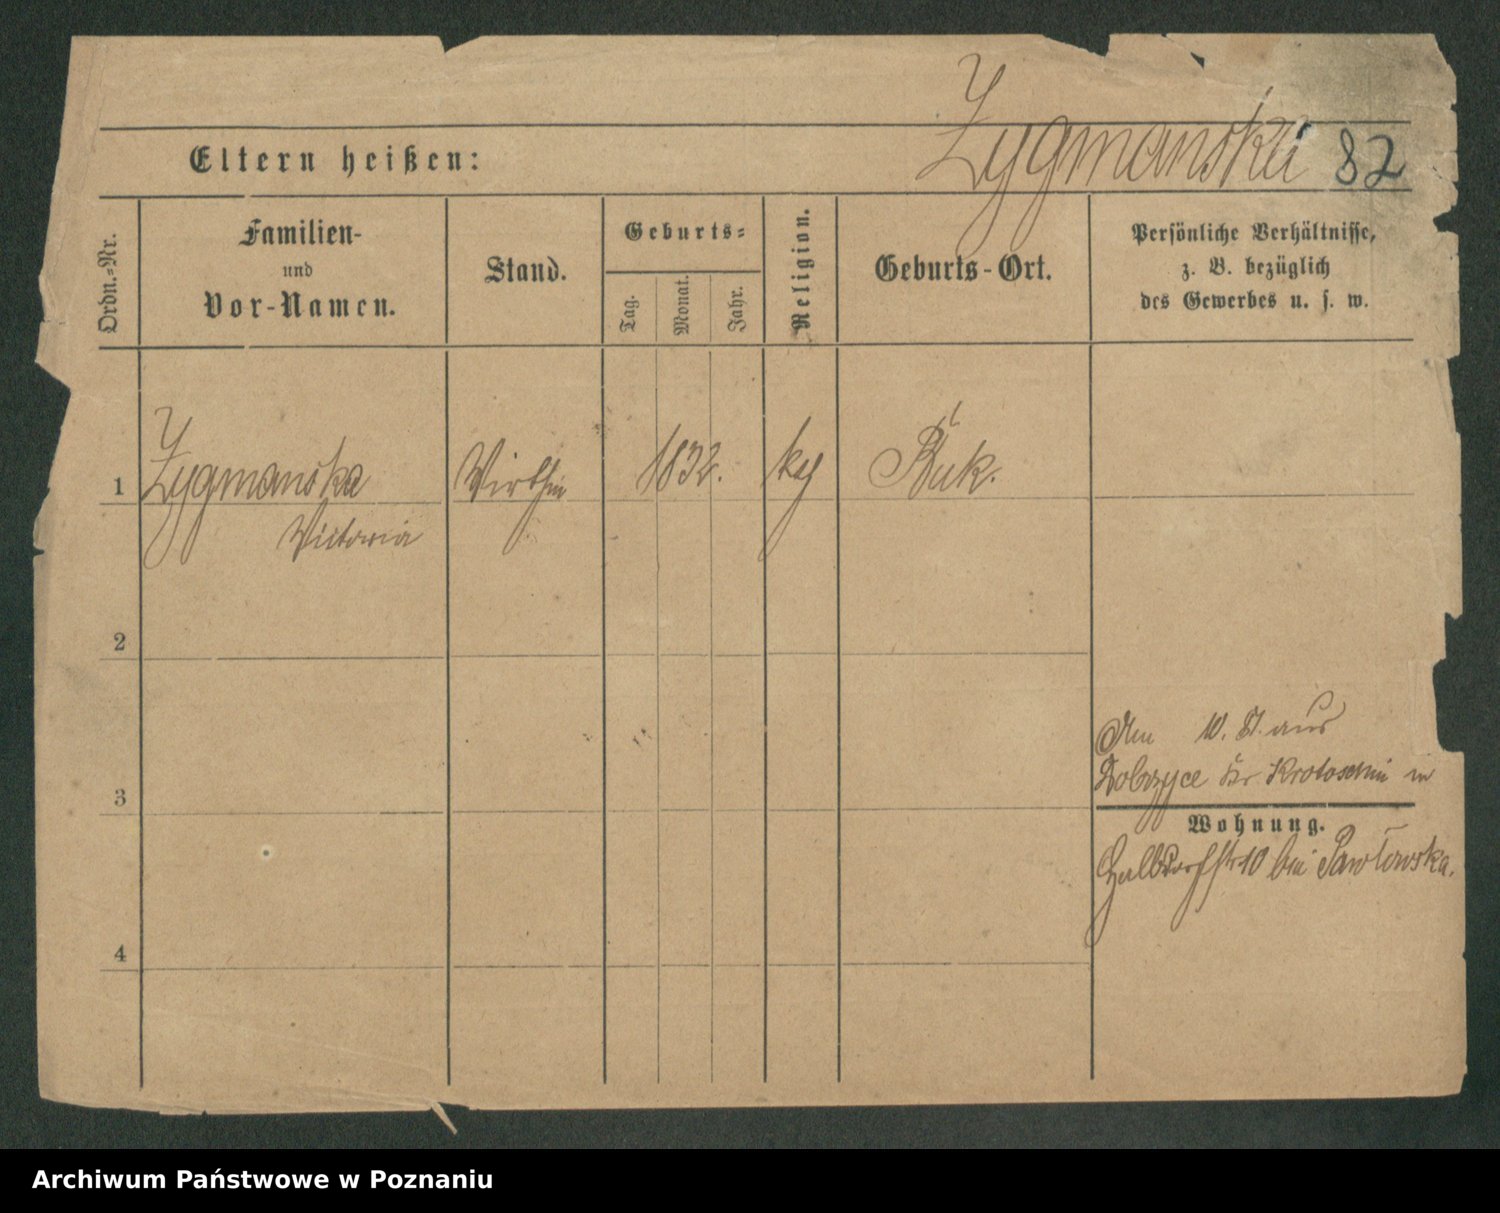 Zygmanska 82
Eltern heißen:
Ordn.-Nr.
Familien-
und
Vor-Namen.
Stand.
Geburts-
Tag.
Monat.
Jahr.
Religion.
Geburts-Ort.
Persönliche Verhältnisse,
z. B. bezüglich
des Gewerbes u. s. w.
1 Zygmanska Wirthin 1832. kg Buk.
Victoria
2
Am 10. aus
3 Dobrzyce Kr. Krotoschin in
Wohnung.
Halbdorfstr 10 bei Pawłowska.
4
Archiwum Państwowe w Poznaniu